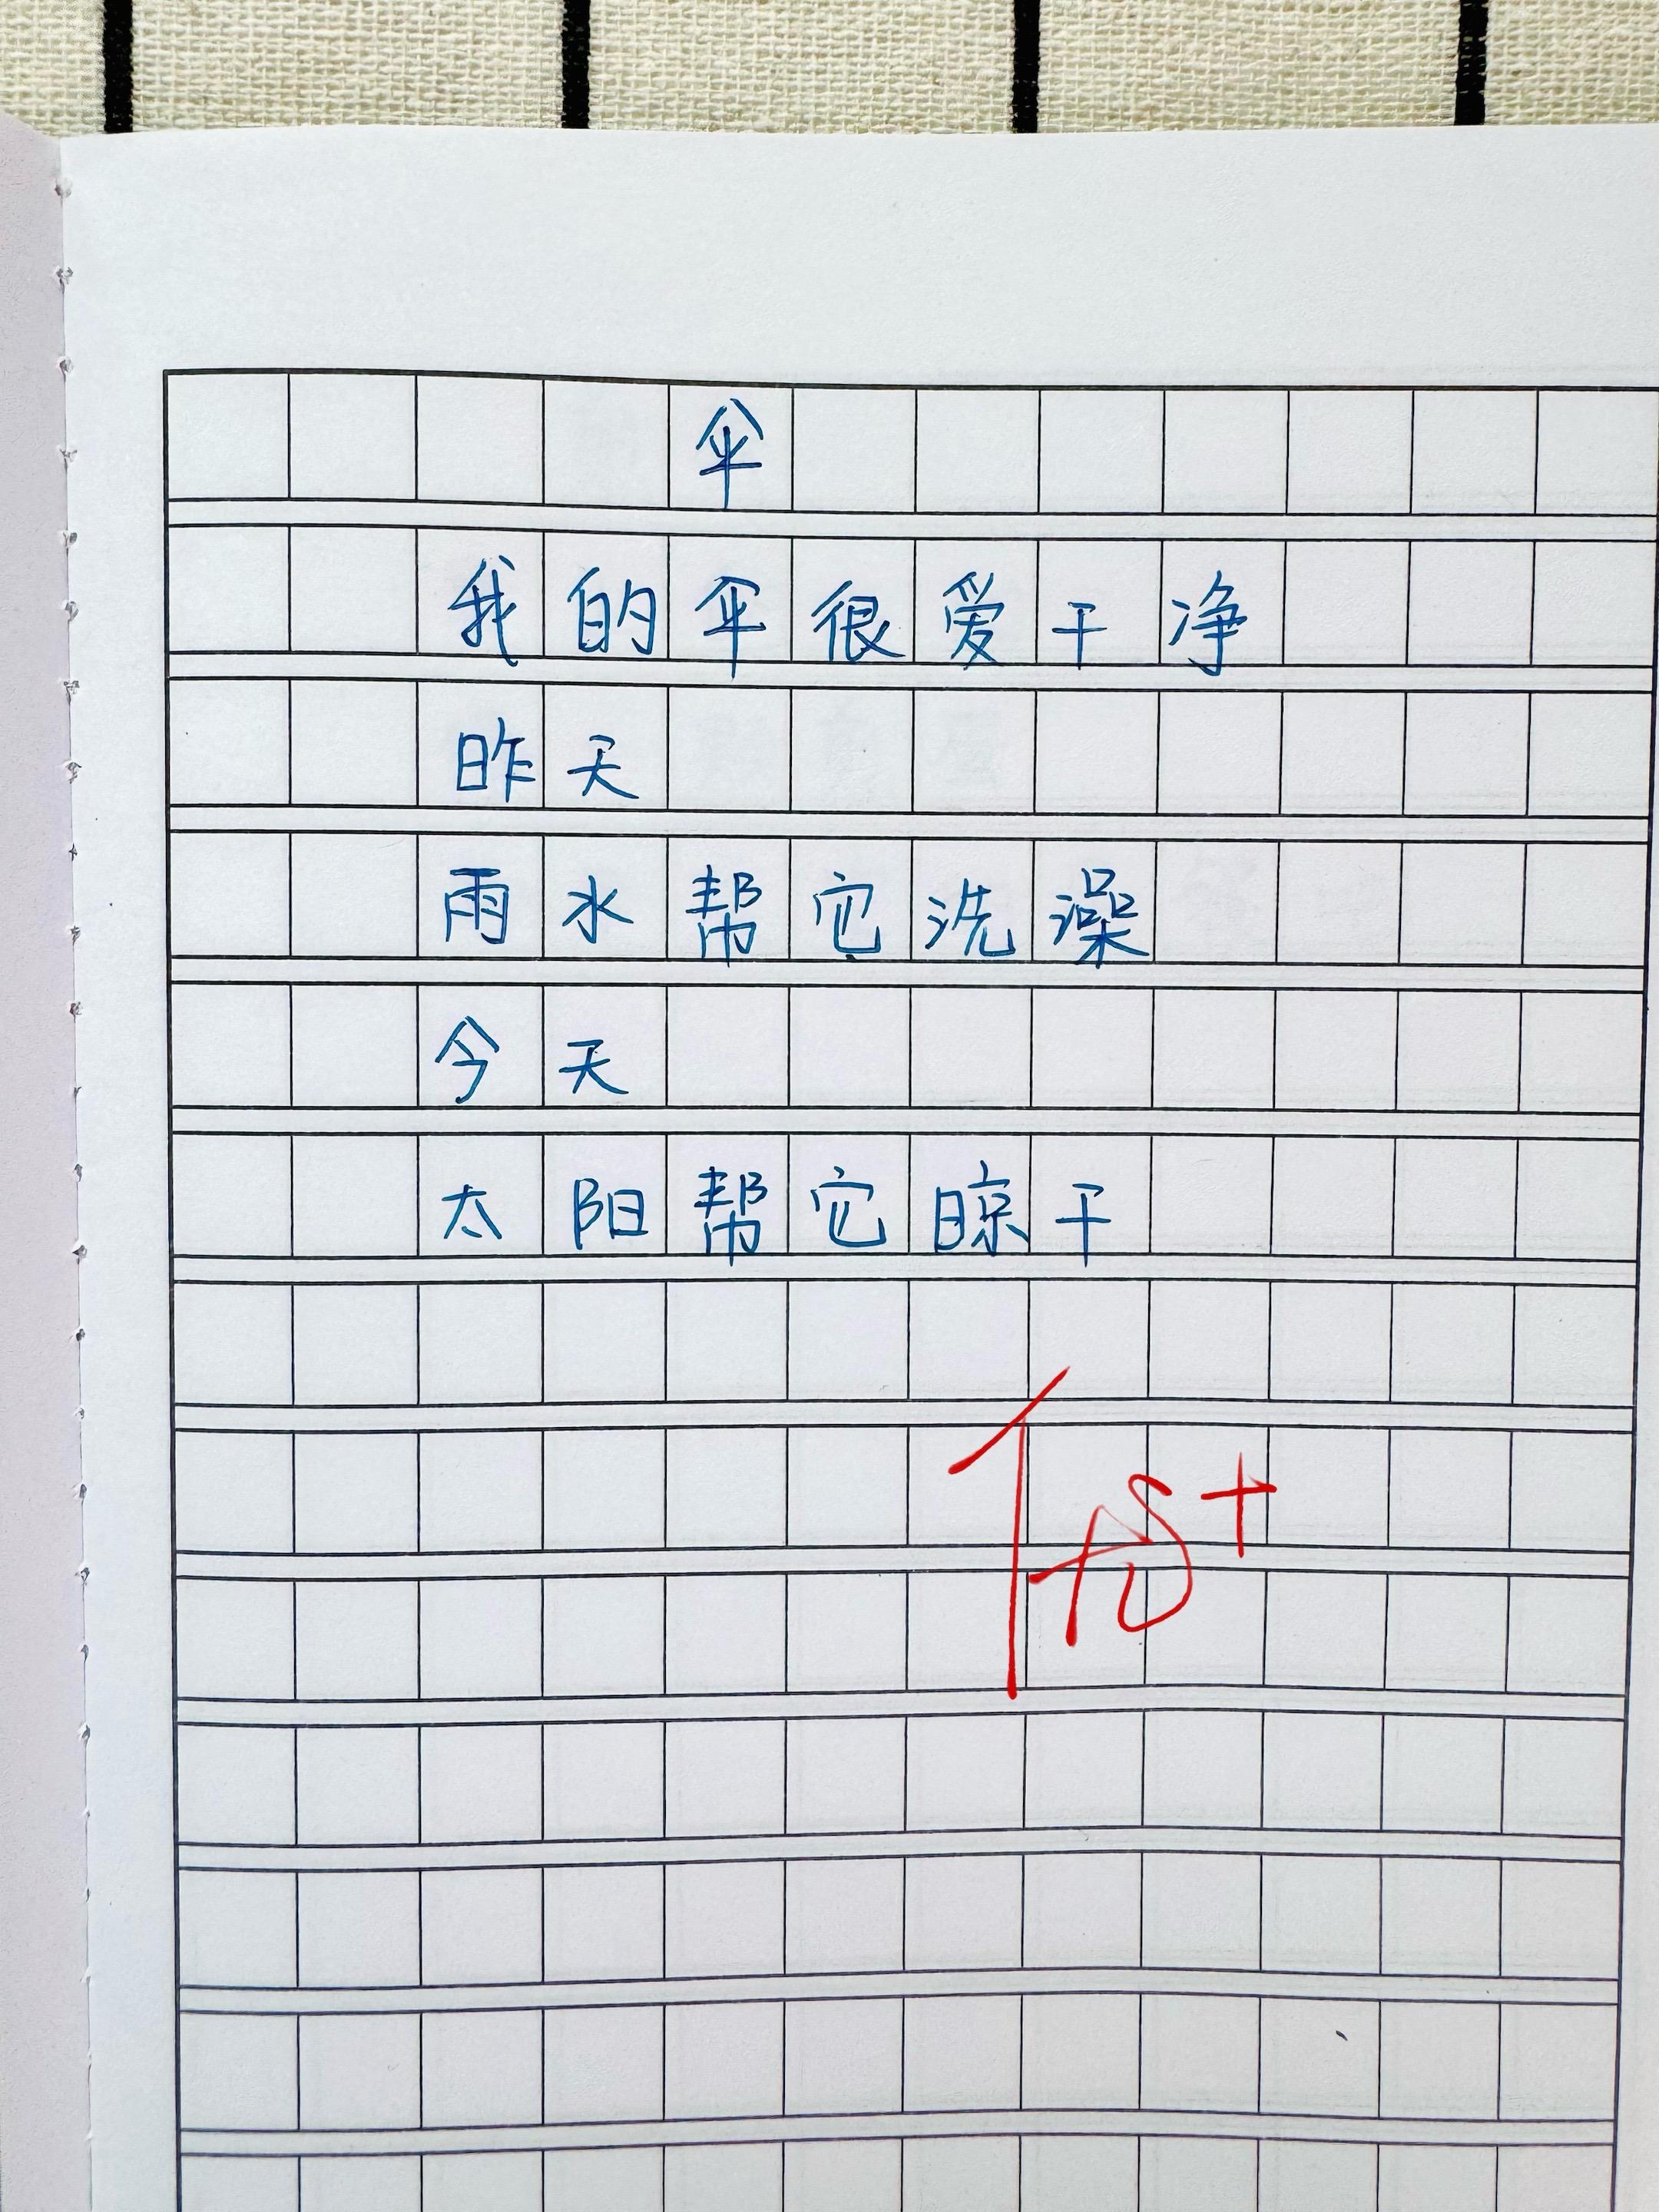 伞
我的伞很爱干净
昨天
雨水帮它洗澡
今天
太阳帮它晾干
优+